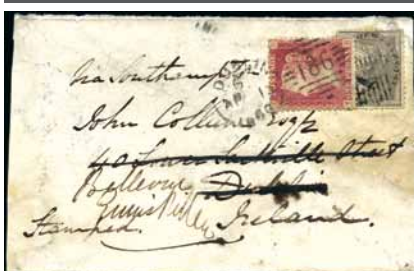 Via Southampton
John Collins Esqr
40 Lower Sackville Street
Bellevue Dublin
Enniskillen
Stamped. Ireland.
186